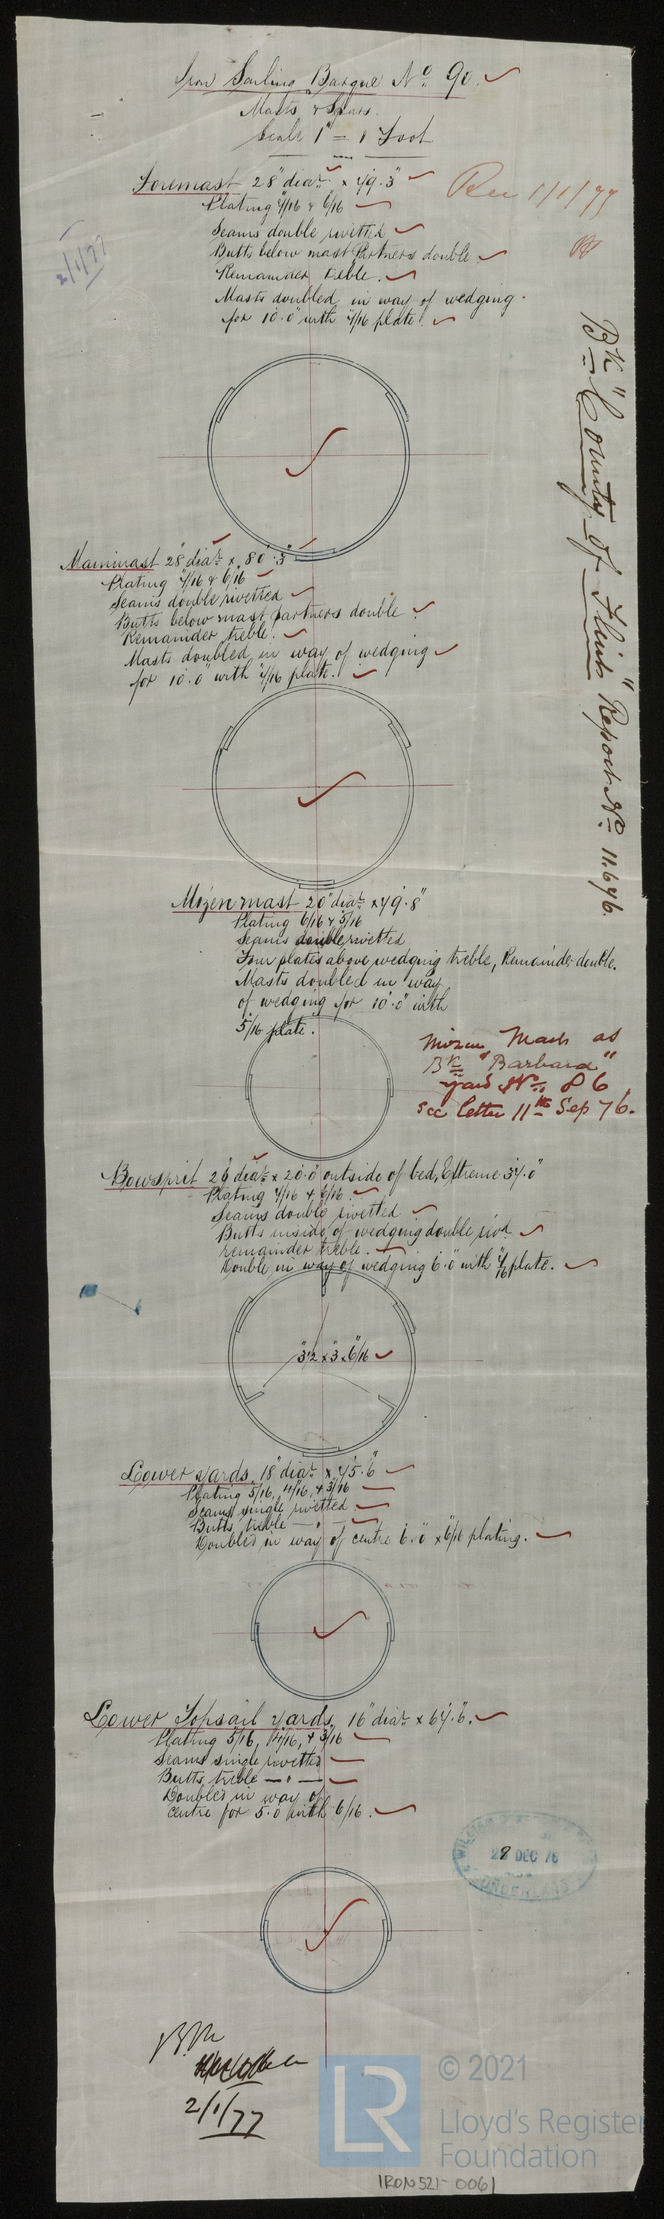 Iron Sailing Barque No. 90.
Masts & Spars.
Scale 1" = 1 Foot
Foremast 28" diar. x 79'.3"
Plating 7/16 & 6/16
Seams double rivetted
Butts below mast Partners double.
Remainder treble.
Masts doubled in way of wedging
for 10'.0" with 7/16 plate.
Rec 1/1/77
2/1/77
Bk "County of Flint" Report No. 11.646.
Mainmast 28" diar. x 80'.3"
Plating 7/16 & 6/16
Seams double rivetted
Butts below mast partners double
Remainder treble.
Masts doubled in way of wedging
for 10'.0" with 7/16 plate.
Mizen mast 20" diar. x 79'.8"
Plating 6/16 & 5/16
Seams double rivetted
Four plates above wedging treble, Remainder double.
Masts doubled in way
of wedging for 10'.0" with
5/16 plate.
Mizen Mast as
Bk "Barbara"
yard No. 86
see letter 11th Sep 76.
Bowsprit 26" diar. x 20'.0" outside of bed, Extreme 37'.0"
Plating 7/16 & 6/16
Seams double rivetted
Butts inside of wedging double rivd
remainder treble.
Double in way of wedging 6'.0" with 7/16 plate.
3½ x 3 x 6/16
Lower yards, 18" diar. x 75'.6"
Plating 5/16, 4/16, & 3/16
Seams single rivetted.
Butts treble — " —
Doubled in way of centre 6'.0" x 6/16 plating.
Lower Topsail yards, 16" diar. x 67'.6".
Plating 5/16, 4/16, & 3/16
Seams single rivetted
Butts treble — " —
Doubled in way of
centre for 5'.0" with 6/16.
28 DEC 76
2/1/77
LR
© 2021
Lloyd's Register
Foundation
IRON521-0061